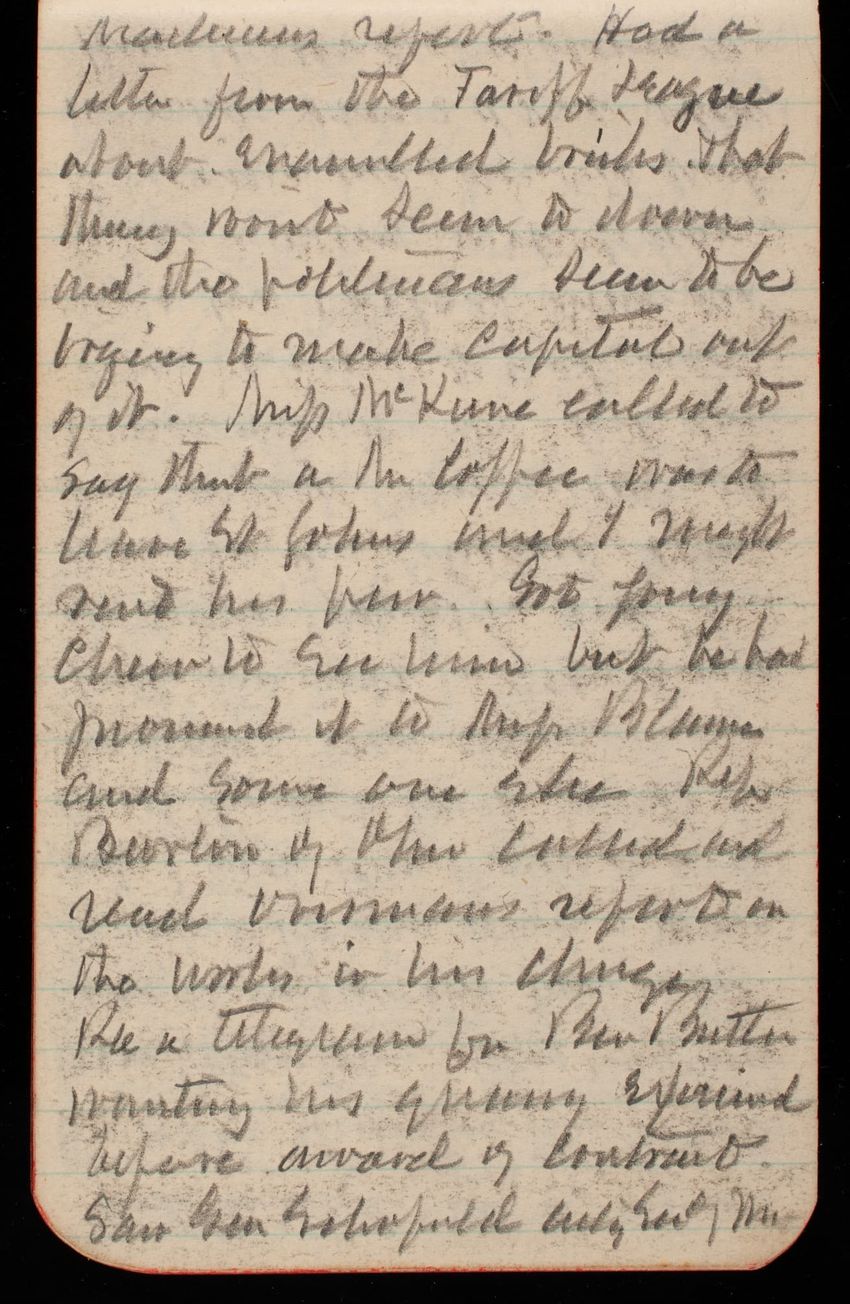 report. Had a
letter from the Tariff League
about Enamelled bricks. That
thing wont seem to down
and the politicians seem to be
trying to make capital out
of it. Miss McKune called to
say that a Mr Coffee was to
leave St Johns and I might
rent his pew. Got
to see him but he had
promised it to Mrs
and some one else Rep
Burton of Ohio called and
read report on
the works in his charge
Rec a telegram fr Ben Butler
wanting his quarry examined
before award of contract.
Saw Gen Schofield